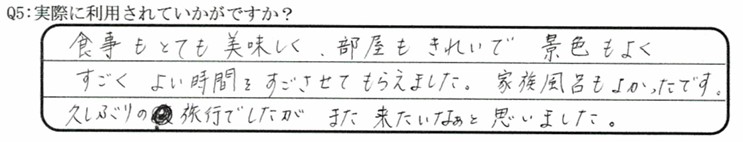 Q5：実際に利用されていかがですか？
食事もとても美味しく、部屋もきれいで 景色もよく
すごく よい時間をすごさせてもらえました。家族風呂もよかったです。
久しぶりの 旅行でしたが また 来たいなぁと思いました。